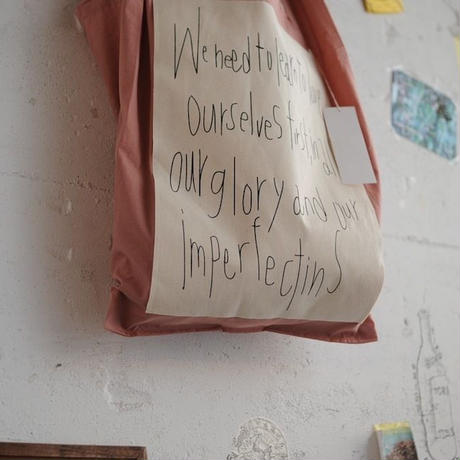 We need to learn to love
ourselves first, in
our glory and our
imperfectins